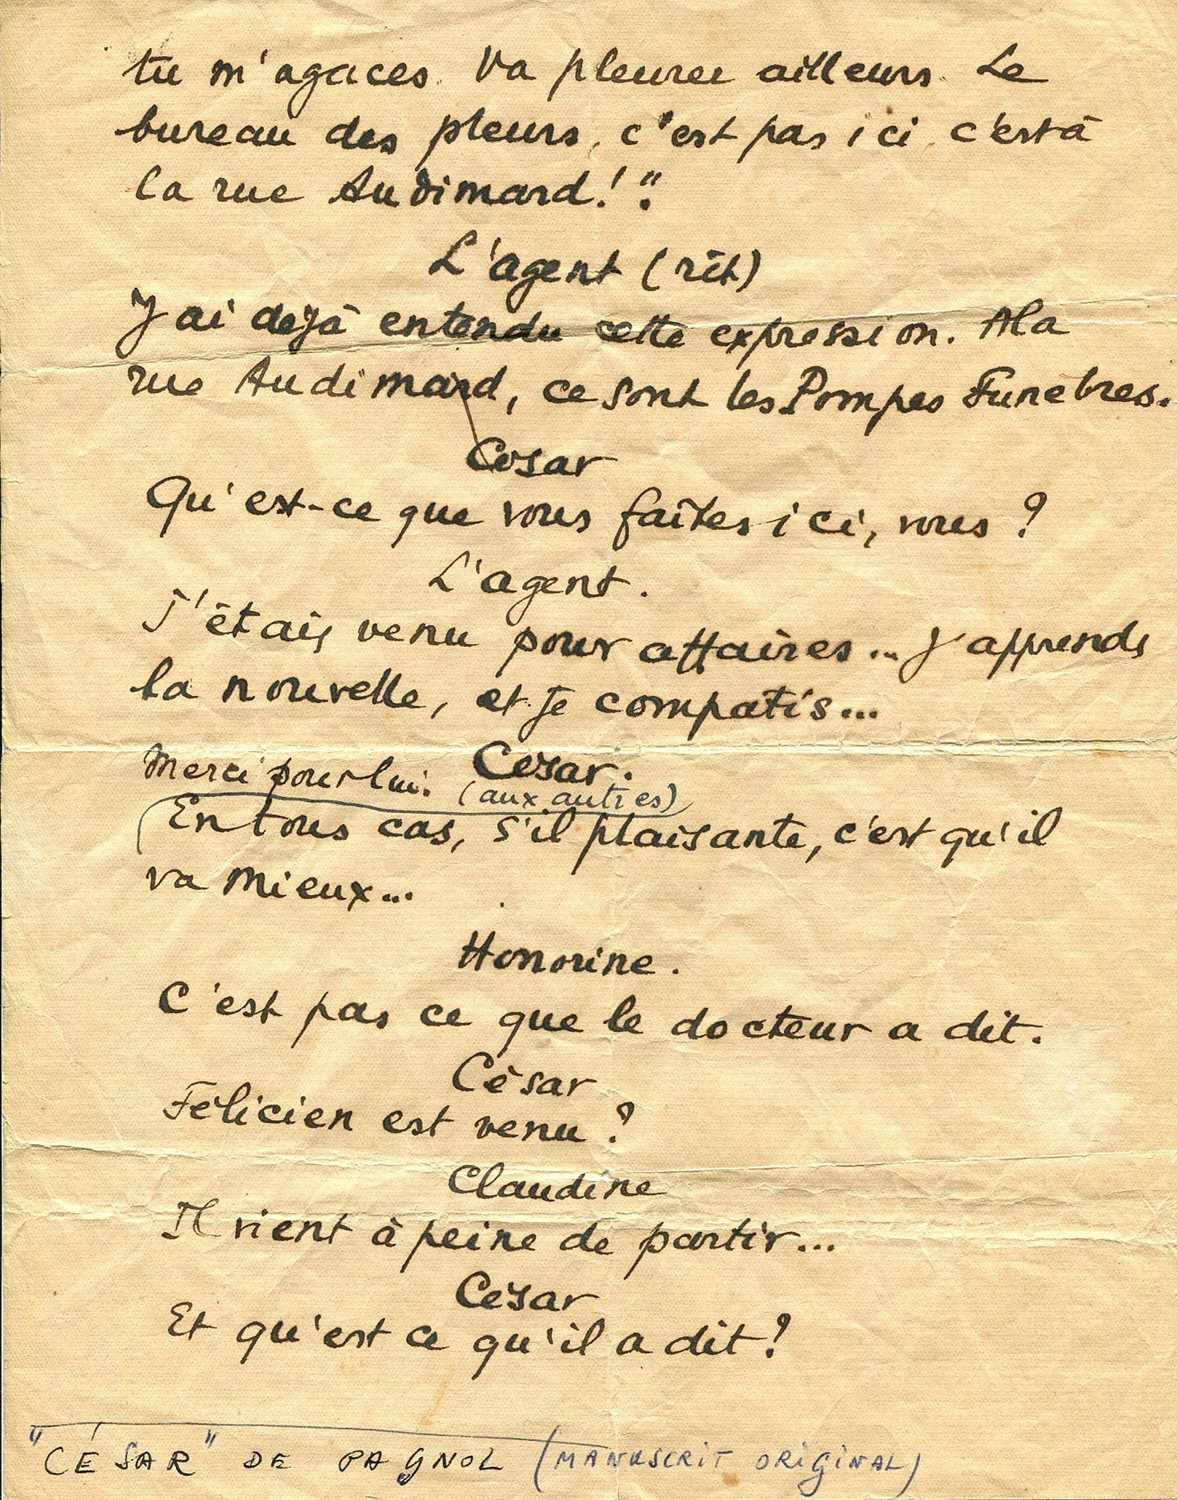 tu m'agaces. Va pleurer ailleurs. Le
bureau des pleurs, c'est pas ici, c'est à
la rue Audimard!".
L'agent (rît)
J'ai dejà entendu cette expression. A la
rue Audimard, ce sont les Pompes Funebres.
César
Qu'est-ce que vous faîtes ici, vous ?
L'agent.
J'étais venu pour affaires... J'apprends
la nouvelle, et je compatis...
Merci pour lui. César.
(aux autres)
En tous cas, s'il plaisante, c'est qu'il
va mieux...
Honorine.
C'est pas ce que le docteur a dit.
César
Félicien est venu ?
Claudine
Il vient à peine de partir...
César
Et qu'est ce qu'il a dit ?
"CÉSAR" DE PAGNOL (MANUSCRIT ORIGINAL)